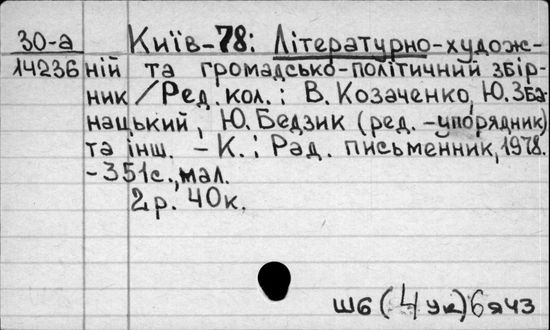 30-а Київ-78: Літературно-худож-
14236 ній та громадсько-політичний збір-
ник / Ред. кол.: В. Козаченко, Ю. Зба-
нацький, Ю. Бедзик (ред.-упорядник)
та інш. - К.: Рад. письменник, 1978.
- 351с., мал.
2р. 40к.
Ш6(4Ук)6я43